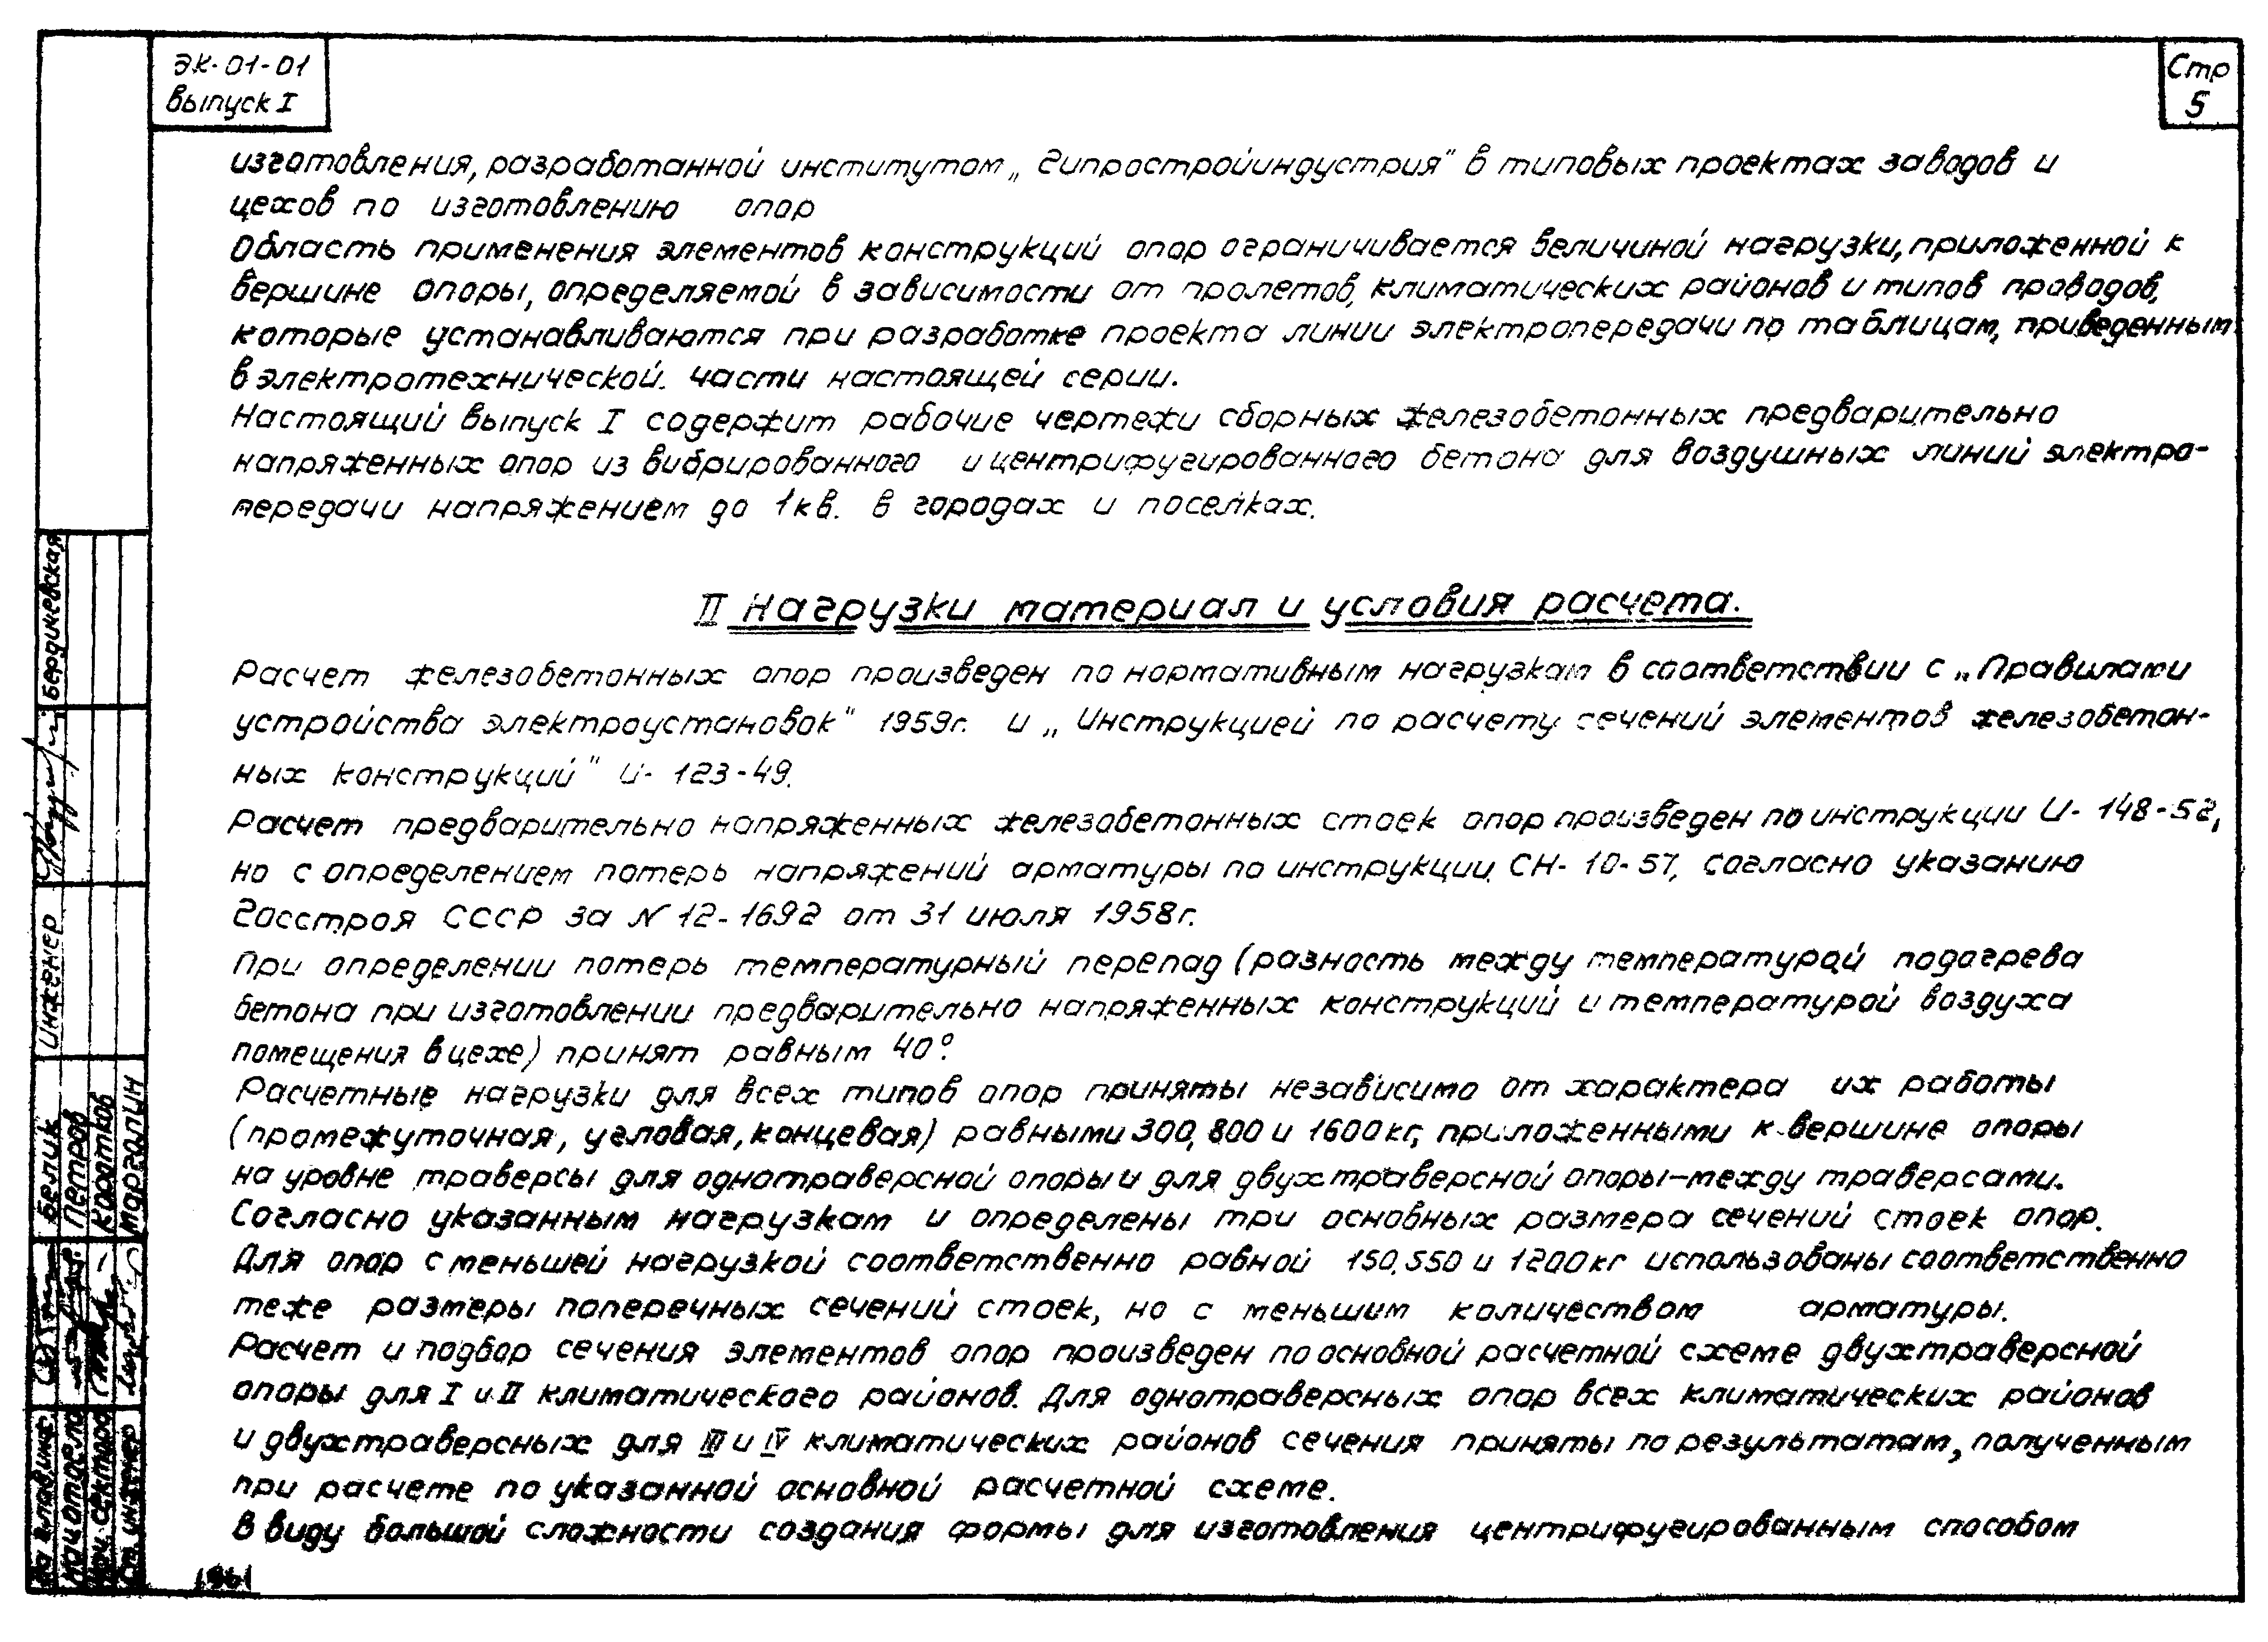 ЭК-01-01
Выпуск I
Стр
5
изготовления, разработанной институтом „Гипростройиндустрия" в типовых проектах заводов и
цехов по изготовлению опор
Область применения элементов конструкций опор ограничивается величиной нагрузки, приложенной к
вершине опоры, определяемой в зависимости от пролетов, климатических районов и типов проводов,
которые устанавливаются при разработке проекта линии электропередачи по таблицам, приведенным
в электротехнической части настоящей серии.
Настоящий выпуск I содержит рабочие чертежи сборных железобетонных предварительно
напряженных опор из вибрированного и центрифугированного бетона для воздушных линий электро-
передачи напряжением до 1кв. в городах и поселках.
II Нагрузки материал и условия расчета.
Расчет железобетонных опор произведен по нормативным нагрузкам в соответствии с „Правилами
устройства электроустановок" 1959г. и „Инструкцией по расчету сечений элементов железобетон-
ных конструкций" И-123-49.
Расчет предварительно напряженных железобетонных стоек опор произведен по инструкции И-148-52,
но с определением потерь напряжений арматуры по инструкции СН-10-57, согласно указанию
Госстроя СССР за N 12-1692 от 31 июля 1958г.
При определении потерь температурный перепад (разность между температурой подогрева
бетона при изготовлении предварительно напряженных конструкций и температурой воздуха
помещения в цехе) принят равным 40°.
Расчетные нагрузки для всех типов опор приняты независимо от характера их работы
(промежуточная, угловая, концевая) равными 300, 800 и 1600кг, приложенными к вершине опоры
на уровне траверсы для однотраверсной опоры и для двухтраверсной опоры-между траверсами.
Согласно указанным нагрузкам и определены три основных размера сечений стоек опор.
Для опор с меньшей нагрузкой соответственно равной 150, 550 и 1200кг использованы соответственно
теже размеры поперечных сечений стоек, но с меньшим количеством арматуры.
Расчет и подбор сечения элементов опор произведен по основной расчетной схеме двухтраверсной
опоры для I и II климатического районов. Для однотраверсных опор всех климатических районов
и двухтраверсных для III и IV климатических районов сечения приняты по результатам, полученным
при расчете по указанной основной расчетной схеме.
В виду большой сложности создания формы для изготовления центрифугированным способом
1961
Бердичевская
Инженер
Белик
Петров
Коротков
Марголин
Нач отдела
Нач. сектора
Ст. инженер